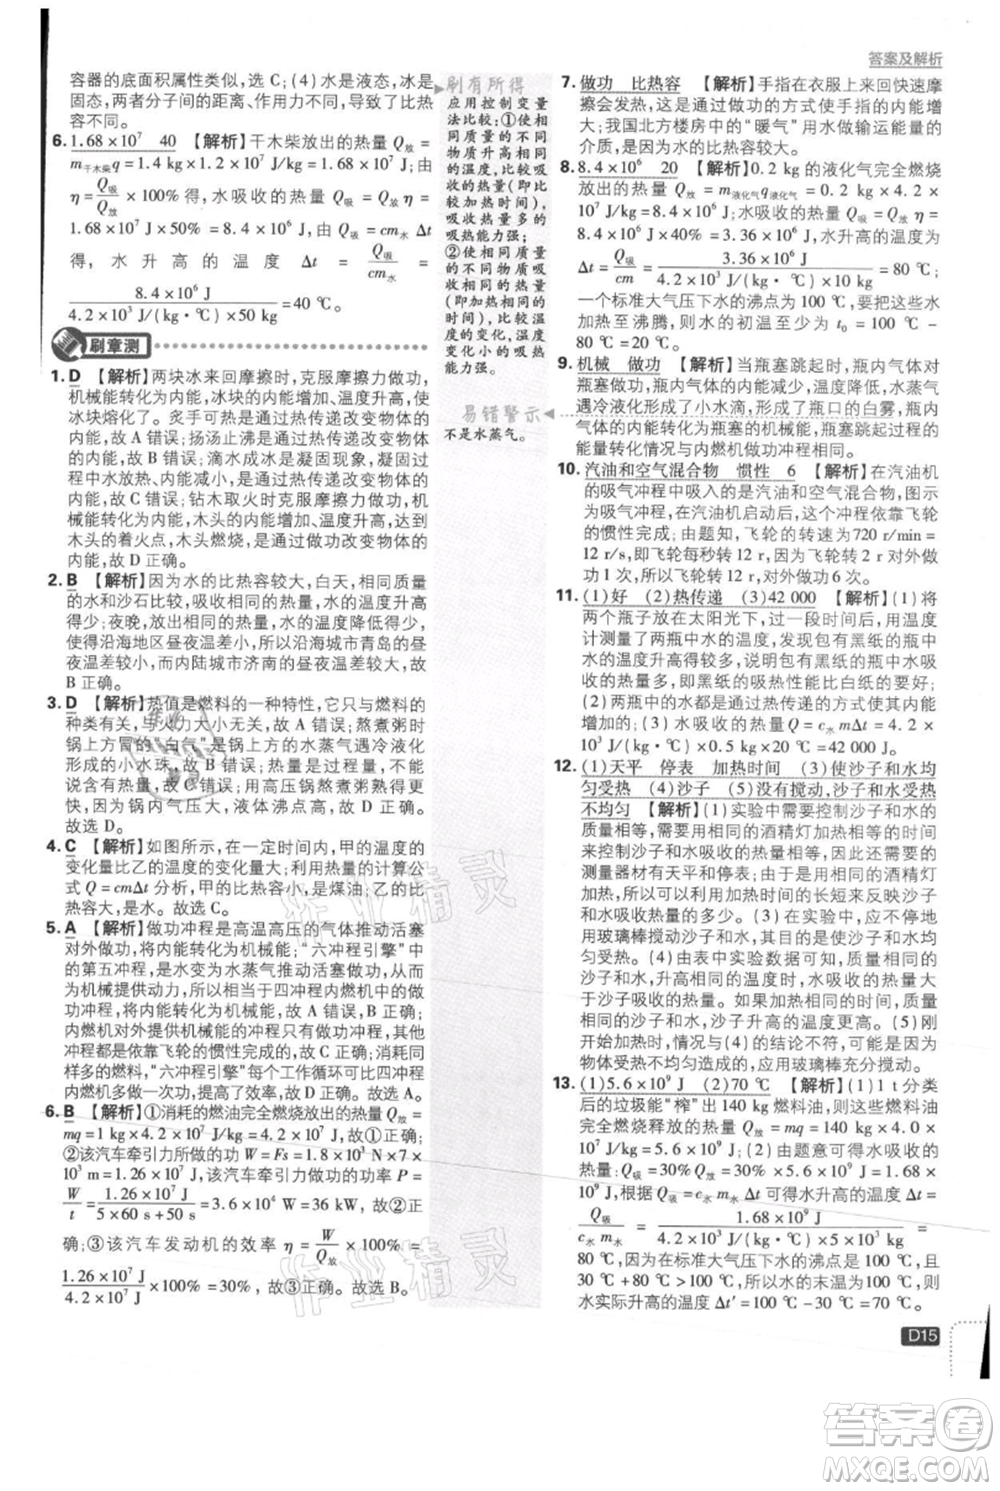 答案及解析
容器的底面积属性类似，选 C；(4) 水是液态，冰是
固态，两者分子间的距离、作用力不同，导致了比热
容不同。
6. 1.68×10⁷ 40 【解析】干木柴放出的热量 Q放 =
m干木柴q = 1.4 kg×1.2×10⁷ J/kg = 1.68×10⁷ J；由
η = Q吸/Q放 ×100% 得，水吸收的热量 Q吸 = Q放η =
1.68×10⁷ J×50% = 8.4×10⁶ J，由 Q吸 = cm水Δt
得，水升高的温度 Δt = Q吸/cm水 =
8.4×10⁶ J/4.2×10³ J/(kg·℃)×50 kg = 40 ℃。
刷章测
1. D 【解析】两块冰来回摩擦时，克服摩擦力做功，
机械能转化为内能，冰块的内能增加、温度升高，
冰块熔化了。炙手可热是通过热传递改变物体的
内能，故 A 错误；扬汤止沸是通过热传递改变物体
的内能，故 B 错误；滴水成冰是凝固现象，凝固过
程中水放热、内能减小，是通过热传递改变物体的
内能，故 C 错误；钻木取火时克服摩擦力做功，机
械能转化为内能，木头的内能增加、温度升高，达到
木头的着火点，木头燃烧，是通过做功改变物体的
内能，故 D 正确。
2. B 【解析】因为水的比热容较大，白天，相同质量
的水和沙石比较，吸收相同的热量，水的温度升高
得少；夜晚，放出相同的热量，水的温度降低得少，
使得沿海地区昼夜温差小，所以沿海城市青岛的昼
夜温差小，而内陆城市济南的昼夜温差较大，故选
B 正确。
3. D 【解析】热值是燃料的一种特性，它只与燃料的
种类有关，与火力大小无关，故 A 错误；熬煮粥时
锅上方冒的“白气”是锅上方的水蒸气遇冷液化
形成的小水珠，故 B 错误；用高压锅熬煮粥熟得
快，是因为锅内气压大，液体沸点高，故 D 正确。
故选 D。
4. C 【解析】如图所示，在一定时间内，甲的温度的
变化量比乙的温度的变化量大；利用热量的计算公
式 Q = cmΔt 分析，甲的比热容小，是煤油；乙的比
热容大，是水。故选 C。
5. A 【解析】做功冲程是高温高压的气体推动活塞
对外做功，将内能转化为机械能；“六冲程引擎”中
的第五冲程，是水变为水蒸气推动活塞做功，将内
能转化为机械能，故 B 错误；四冲程内燃机的做功
冲程提供动力，将内能转化为机械能，故 C 错误；
内燃机对外提供机械能的冲程是做功冲程，其他冲
程都是依靠飞轮的惯性完成的，故 D 错误；消耗同
样多的燃料，“六冲程引擎”一个工作循环可比四冲程
内燃机多做一次功，提高了效率，故 A 正确。故选 A。
6. B 【解析】①消耗的燃油完全燃烧放出的热量 Q放 =
mq = 1 kg×4.2×10⁷ J/kg = 4.2×10⁷ J，故①正确；
②该汽车牵引力做的功 W = Fs = 1.26×10⁷ J，
该汽车牵引力做功的功率 P =
W/t = 1.26×10⁷ J/5×60 s+50 s = 3.6×10⁴ W = 36 kW，故②正
确；③该汽车发动机的效率 η = W/Q放 ×100% =
1.26×10⁷ J/4.2×10⁷ J ×100% = 30%，故③正确。故选 B。
刷有所得
应用控制变量
法比较：①使相
同质量的不同
物质升高相同
的温度，比较吸
收的热量(即比
较加热时间)，
吸收热量多的
吸热能力强；
②使相同质量
的不同物质吸
收相同的热量
(即加热相同的
时间)，比较温
度的变化，温度
变化小的吸热
能力强。
易错警示
不是水蒸气。
7. 做功 比热容 【解析】手指在衣服上来回快速摩
擦会发热，是通过做功的方式使手指的内能增
大；我国北方楼房中的“暖气”用水做输运能量的
介质，是因为水的比热容较大。
8. 8.4×10⁶ 20 【解析】0.2 kg 的液化气完全燃烧
放出的热量 Q放 = m液化气q液化气 = 0.2 kg×4.2×
10⁷ J/kg = 8.4×10⁶ J；水吸收的热量 Q吸 = Q放η =
8.4×10⁶ J×40% = 3.36×10⁶ J，水升高的温度
Δt = Q吸/cm = 3.36×10⁶ J/4.2×10³ J/(kg·℃)×10 kg = 80 ℃；
一个标准大气压下水的沸点为 100 ℃，要把这些水
加热至沸腾，则水的初温至少为 t₀ = 100 ℃ -
80 ℃ = 20 ℃。
9. 机械 做功 【解析】当瓶塞跳起时，瓶内气体对
瓶塞做功，瓶内气体的内能减少，温度降低，水蒸气
遇冷液化形成了小水滴，形成了瓶口的白雾，瓶内
气体的内能转化为瓶塞的机械能，瓶塞跳起过程的
能量转化情况与内燃机做功冲程相同。
10. 汽油和空气混合物 惯性 6 【解析】在汽油机
的吸气冲程中吸入的是汽油和空气混合物，图示
为吸气冲程，在汽油机启动后，这个冲程依靠飞轮
的惯性完成；由题知，飞轮的转速为720 r/min =
12 r/s，即飞轮每秒转 12 r，因为飞轮转 2 r 对外做
功1次，所以飞轮转 12 r，做功 6 次。
11. (1)好 (2)热传递 (3)42 000 【解析】(1)将
两个瓶子放在太阳光下，过一段时间后，用温度
计测量了两瓶中水的温度，发现包有黑纸的瓶中水
的温度高，说明包有黑纸的瓶中水吸
收的热量多，故黑纸的吸热性能比白纸的好；
(2)用热传递的方式使瓶中水的内能
增加的；(3)水吸收的热量 Q = c水mΔt = 4.2×
10³ J/(kg·℃)×0.5 kg×20 ℃ = 42 000 J。
12. (1)天平 停表 加热时间 (3)使沙子和水均
匀受热 (4)沙子 (5)没有搅动，沙子和水受热
不均匀 【解析】(1)实验中需要控制沙子和水的
质量相等，需要用相同的酒精灯加热相等的时间
来控制沙子和水吸收相同的热量，由此可知还需要的
测量器材有天平和停表；由于是相同的酒精灯
加热，故可以用加热时间的长短来反映沙子和
水吸收热量的多少。(3)在实验中，应不停地
用玻璃棒搅动沙子和水，目的是使沙子和水均
匀受热。(4)由表中实验数据可知，质量相同的沙子
和水，升高相同的温度时，水吸收的热量
大于沙子吸收的热量。如果加热相同的时间，质量
相同的沙子和水，沙子升高的温度更高。(5)刚
开始加热时，情况与(4)的结论不符，可能是因为
物体受热不均匀造成的，应用玻璃棒充分搅动。
13. (1)5.6×10⁸ J (2)70 ℃ 【解析】(1)1 t 分类
后的垃圾能“榨”出 140 kg 燃料油，则这些燃料油
完全燃烧释放的热量 Q放 = mq = 140 kg×4.0×
热量：Q吸 = 30%Q放 = 30%×5.6×10⁹ J = 1.68×
10⁹ J，根据 Q吸 = c水m水Δt 可得水升高的温度 Δt =
Q吸/c水m水 = 1.68×10⁹ J/
80 ℃，因为在标准大气压下水的沸点为 100 ℃，
30 ℃+80 ℃>100 ℃，所以水的末温为100 ℃，则
水实际升高的温度 Δt′ = 100 ℃-30 ℃ = 70 ℃。
D15
作业精灵
作业精灵
答案圈
MXQE.COM